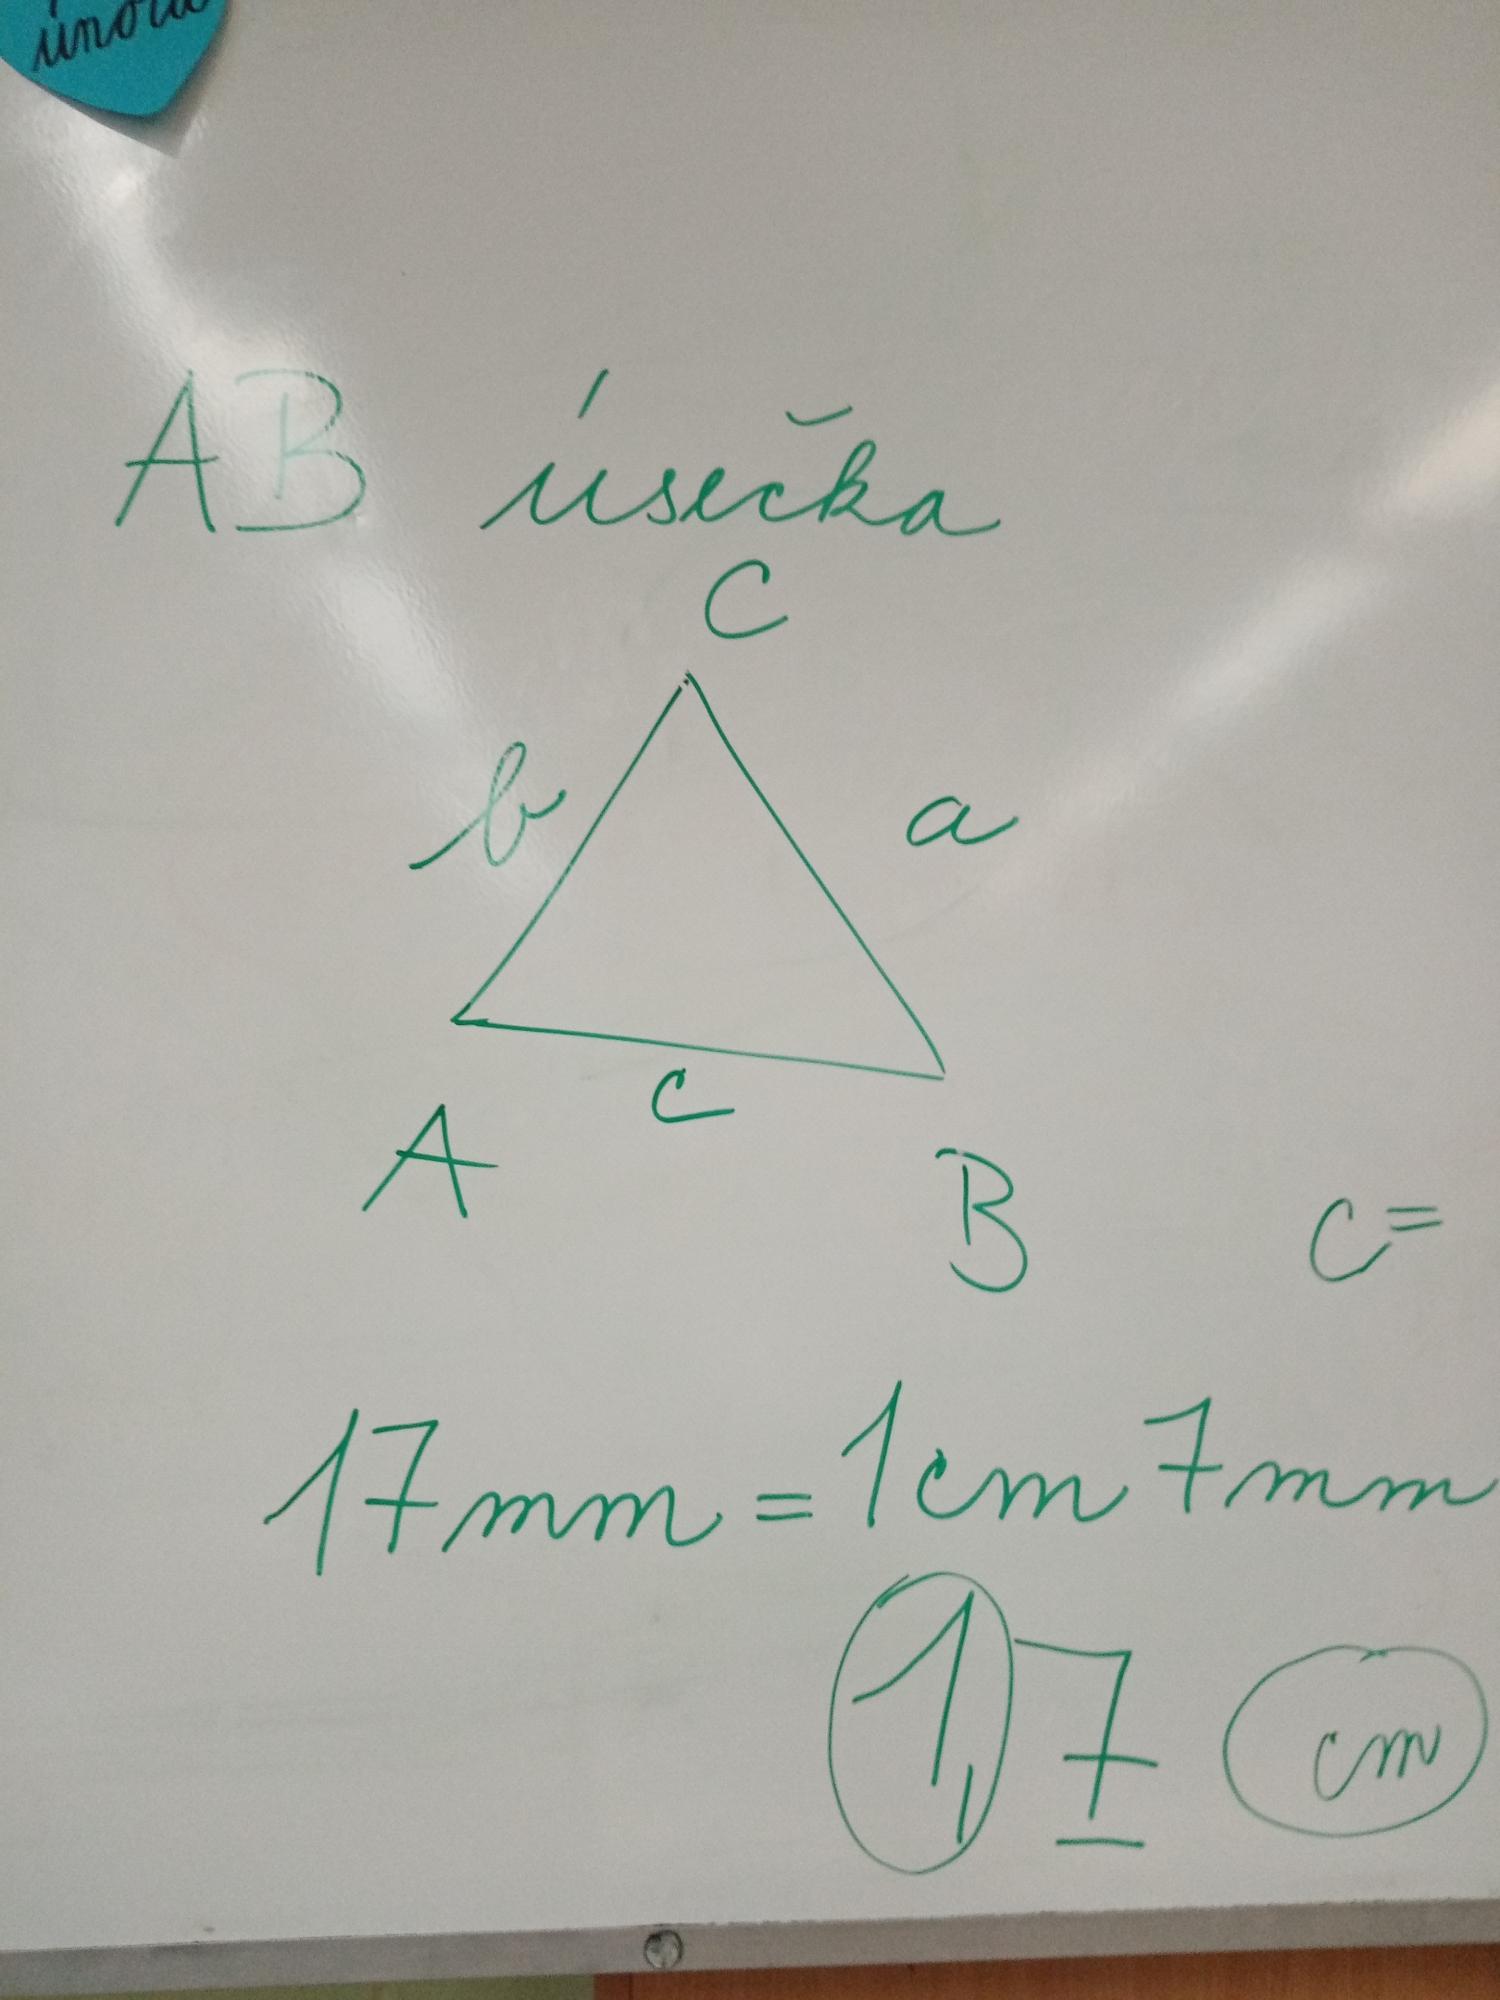 února
AB úsečka
C
b a
c
A B c=
17mm = 1cm 7mm
1,7 cm